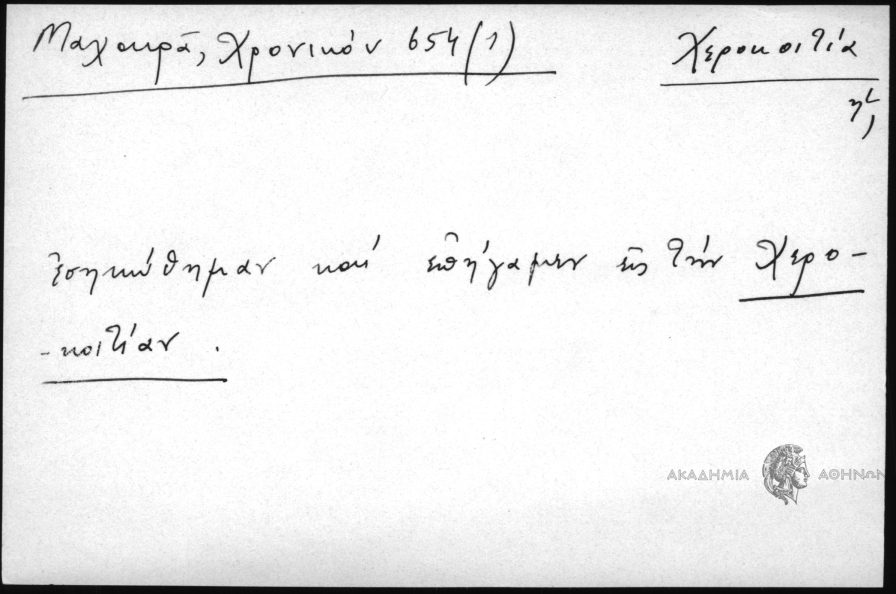 Μαχαιρᾶ, Χρονικόν 654 (1)
Χεροκοιτία
ἡ,
ἐσηκώθημαν καί ἐπήγαμεν εἰς τήν Χερο-
-κοιτίαν.
ΑΚΑΔΗΜΙΑ ΑΘΗΝΩΝ